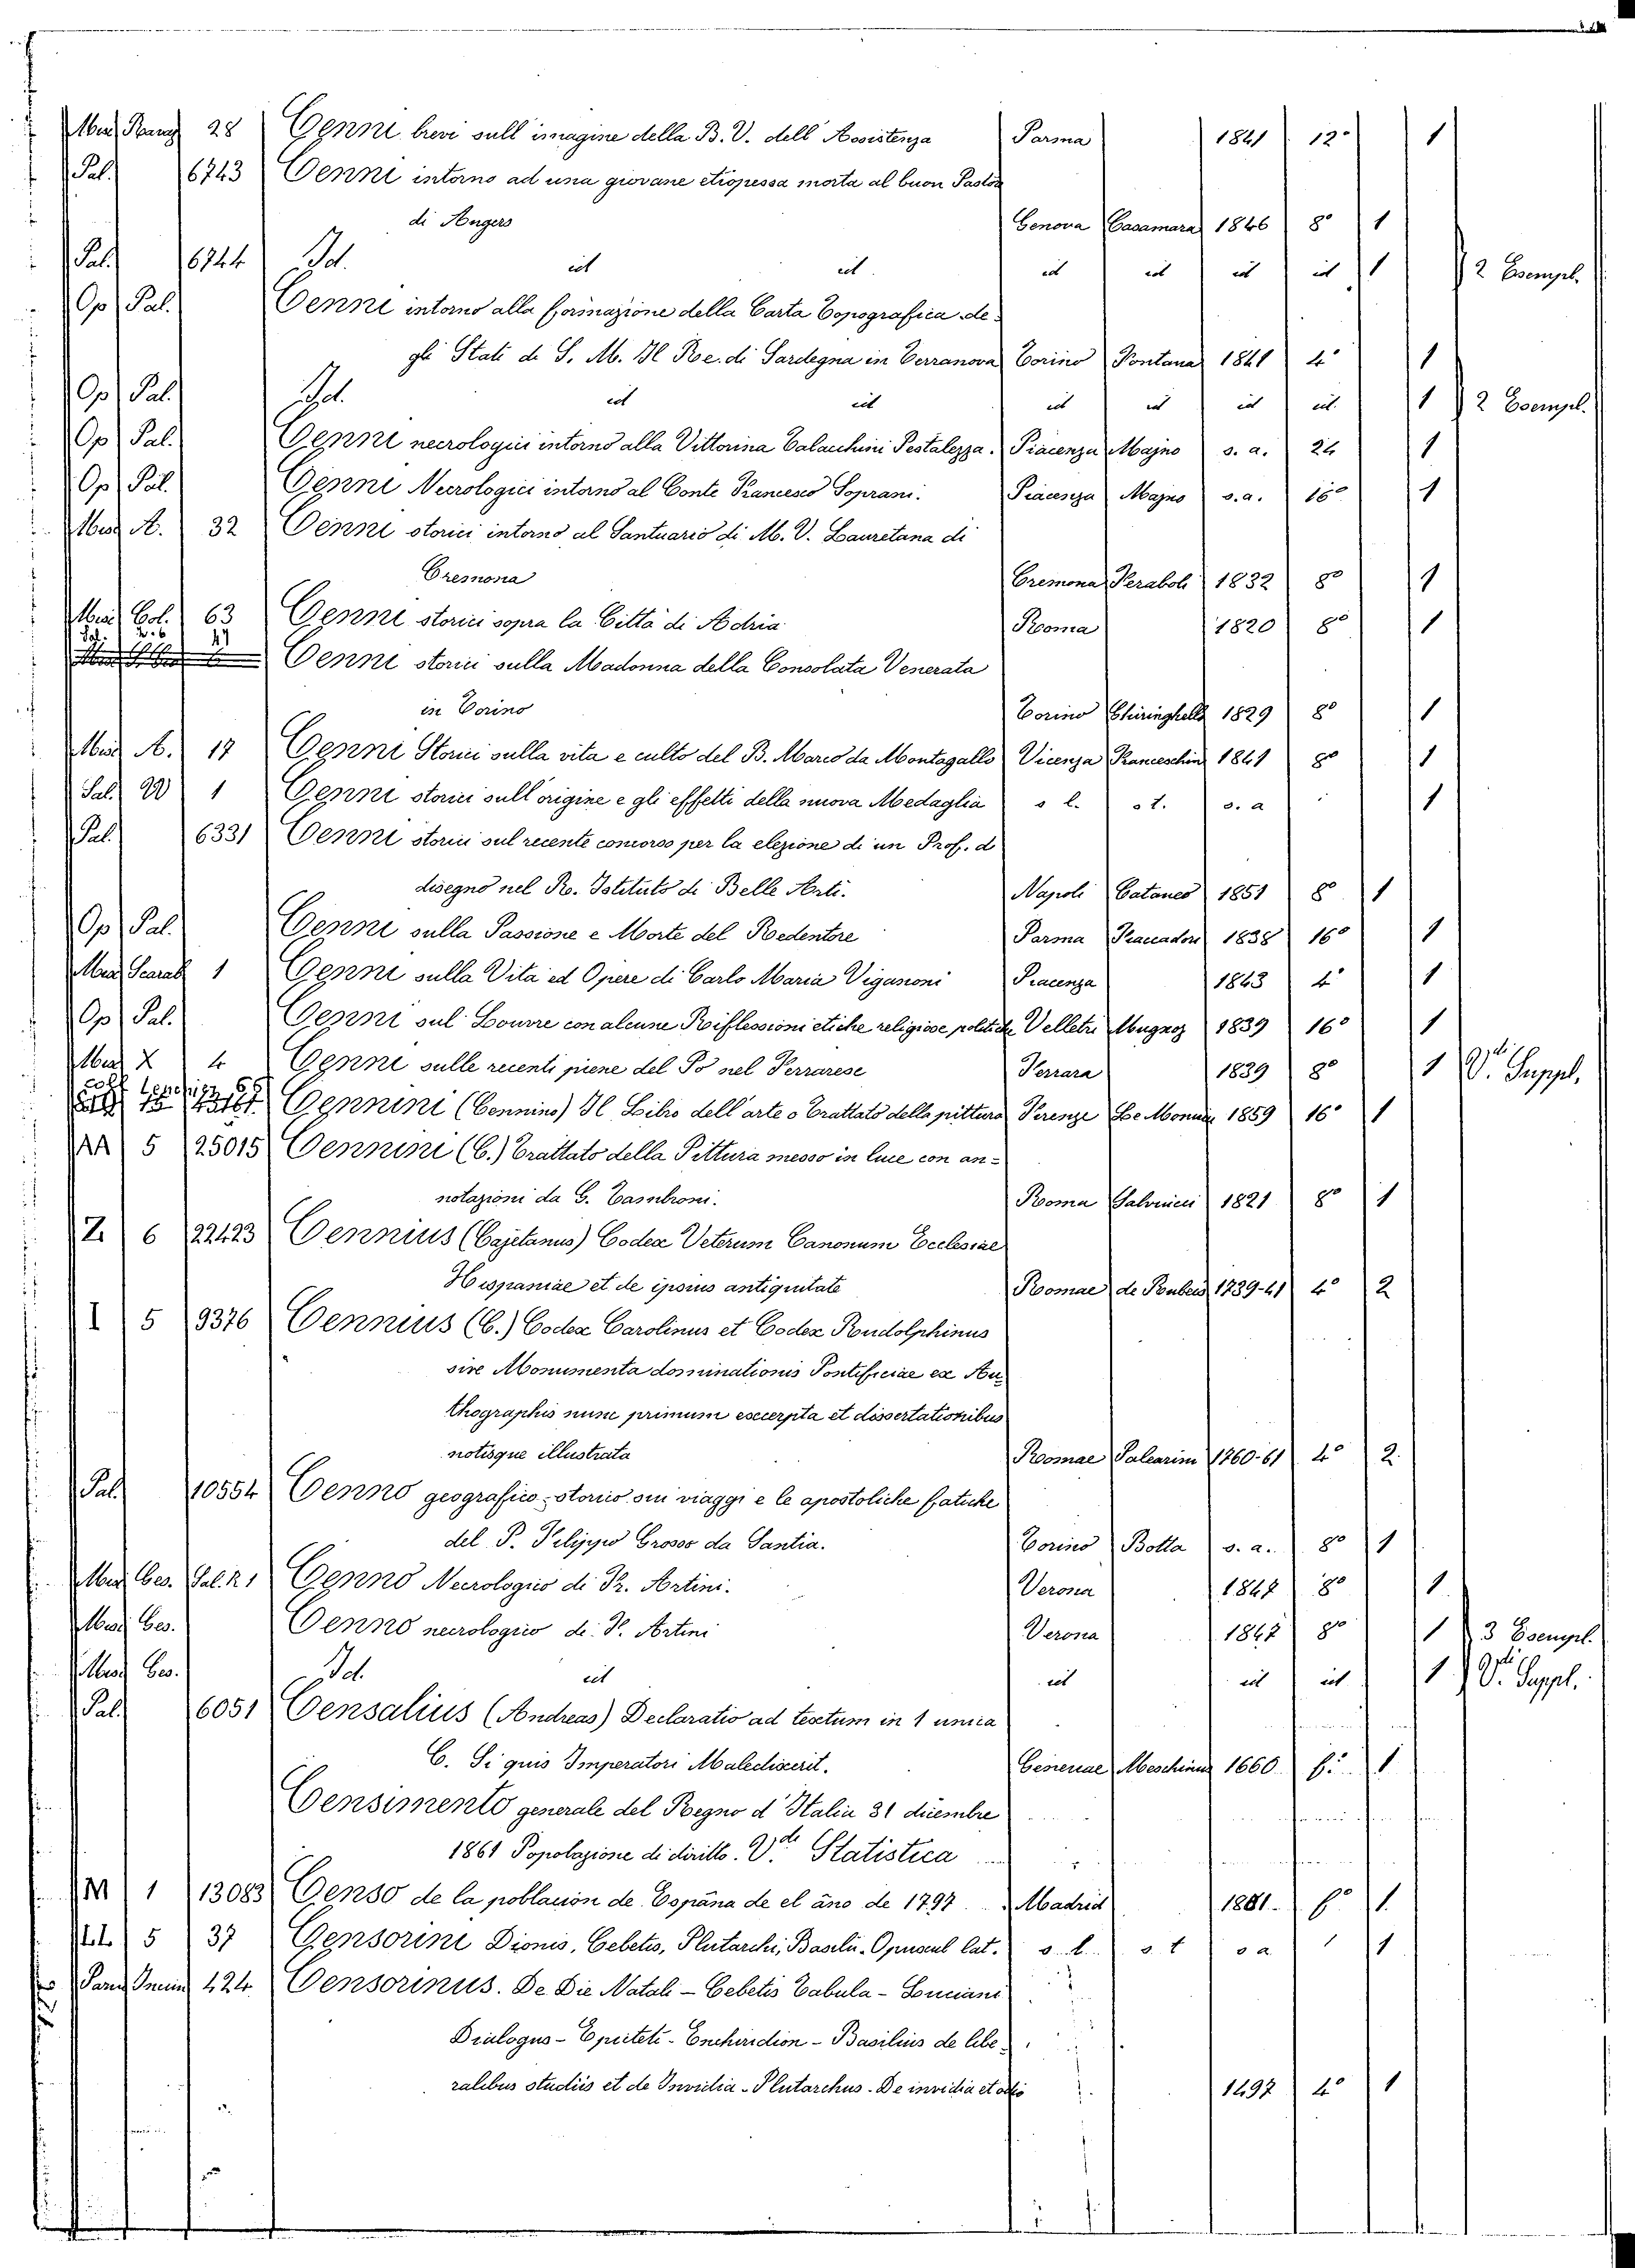 28 Cenni brevi sull' imagine della B. V. dell' Assistenza Parma 1841 12° 1
Pal. 6743 Cenni intorno ad una giovane etiopessa morta al buon Pastor
di Angers Genova Casamara 1846 8° 1
Pal. 6744 Id. id id id id id id 1 2 Esempl.
Op. Pal. Cenni intorno alla formazione della Carta Topografica de-
gli Stati di S. M. Il Re di Sardegna in Terranova Torino Fontana 1841 4° 1
Op. Pal. Id. id id id id id id. 1 2 Esempl.
Op. Pal. Cenni necrologici intorno alla Vittorina Calacchini Pestalezza. Piacenza Majno s. a. 24 1
Op. Pal. Cenni Necrologici intorno al Conte Francesco Soprani. Piacenza Majno s. a. 16° 1
Misc. A. 32 Cenni storici intorno al Santuario di M. V. Lauretana di
Cremona Cremona Feraboli 1832 8° 1
Misc. Col. 63 Cenni storici sopra la Città di Adria Roma 1820 8° 1
Cenni storici sulla Madonna della Consolata Venerata
in Torino Torino Ghiringhello 1829 8° 1
Misc. A. 17 Cenni Storici sulla vita e culto del B. Marco da Montagallo Vicenza Franceschini 1841 8° 1
Sal. W 1 Cenni storici sull'origine e gli effetti della nuova Medaglia s. l. s. t. s. a 1
Pal. 6331 Cenni storici sul recente concorso per la elezione di un Prof. d
disegno nel R. Istituto di Belle Arti. Napoli Cataneo 1851 8° 1
Op. Pal. Cenni sulla Passione e Morte del Redentore Parma Fiaccadori 1838 16° 1
Misc. Scarab 1 Cenni sulla Vita ed Opere di Carlo Maria Viganoni Piacenza 1843 4° 1
Op. Pal. Cenni sul Louvre con alcune Riflessioni etiche religiose politiche Velletri 1839 16° 1
Misc. X 4 Cenni sulle recenti piene del Po nel Ferrarese Ferrara 1839 8° 1 Vdi. Suppl.
Cennini (Cennino) Il Libro dell'arte o Trattato della pittura Firenze Le Monnier 1859 16° 1
AA 5 25015 Cennini (C.) Trattato della Pittura messo in luce con an=
notazioni da G. Tambroni. Roma Salviucci 1821 8° 1
Z. 6 22423 Cennius (Cajetanus) Codex Veterum Canonum Ecclesiae
Hispaniae et de ipsius antiquitate Romae de Rubeis 1739-41 4° 2
I 5 9376 Cennius (C.) Codex Carolinus et Codex Rudolphinus
sive Monumenta dominationis Pontificiae ex Au-
thographis nunc primum excerpta et dissertationibus
notisque illustrata Romae Palearini 1760-61 4° 2.
Pal. 10554 Cenno geografico-storico sui viaggi e le apostoliche fatiche
del P. Filippo Grosso da Santia. Torino Botta s. a. 8° 1
Misc. Ces. Pal. 21 Cenno Necrologico di Fr. Artini. Verona 1847 8° 1.
Misc. Ces. Cenno necrologico di F. Artini Verona 1847 8° 1 3 Esempl.
Misc. Ces. Id. id id id id 1 Vdi. Suppl.
Pal. 6051 Censalius (Andreas) Declaratio ad textum in 1 unica
C. Si quis Imperatori Maledixerit. Cesenae 1660 f.° 1
Censimento generale del Regno d' Italia 31 dicembre
1861 Popolazione di diritto. Vdi Statistica
M 1 13083 Censo de la poblacion de Espána de el áno de 1797. Madrid 1801. f.° 1.
LL 5 37 Censorini Dionis, Cebetis, Plutarchi, Basilii. Opuscul lat. s. l. s. t s a. 1
424 Censorinus. De Die Natali - Cebetis Tabula - Luciani
Dialogus - Epicteti - Enchiridion - Basilius de libe-
ralibus studiis et de Invidia - Plutarchus - De invidia et odio 1497 4° 1